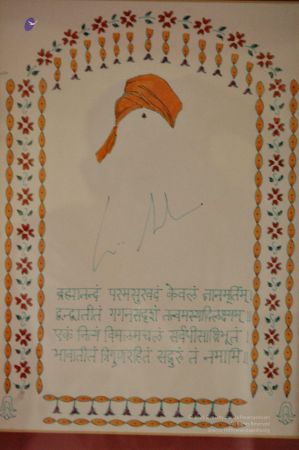 ब्रह्मानन्दं परमसुखदं केवलं ज्ञानमूर्तिम्।
द्वन्द्वातीतं गगनसदृशं तत्त्वमस्यादिलक्ष्यम्॥
एकं नित्यं विमलमचलं सर्वधीसाक्षिभूतं।
भावातीतं त्रिगुणरहितं सद्गुरुं तं नमामि॥